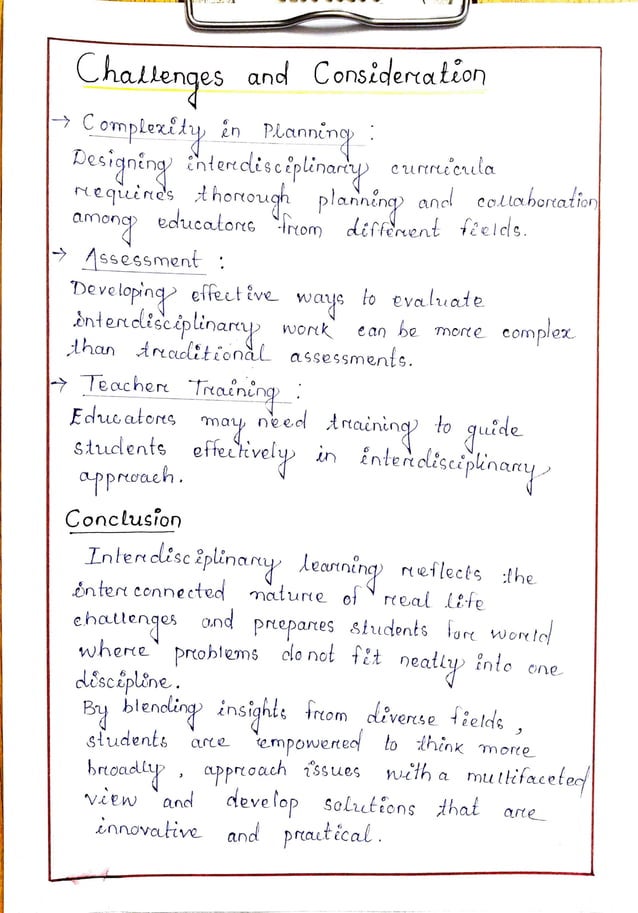 Challenges and Consideration
→ Complexity in Planning :
Designing interdisciplinary curricula
requires thorough planning and collaboration
among educators from different fields.
→ Assessment :
Developing effective ways to evaluate
interdisciplinary work can be more complex
than traditional assessments.
→ Teacher Training :
Educators may need training to guide
students effectively in interdisciplinary
approach.
Conclusion
Interdisciplinary learning reflects the
interconnected nature of real life
challenges and prepares students for world
where problems do not fit neatly into one
discipline.
By blending insights from diverse fields,
students are empowered to think more
broadly, approach issues with a multifaceted
view and develop solutions that are
innovative and practical.